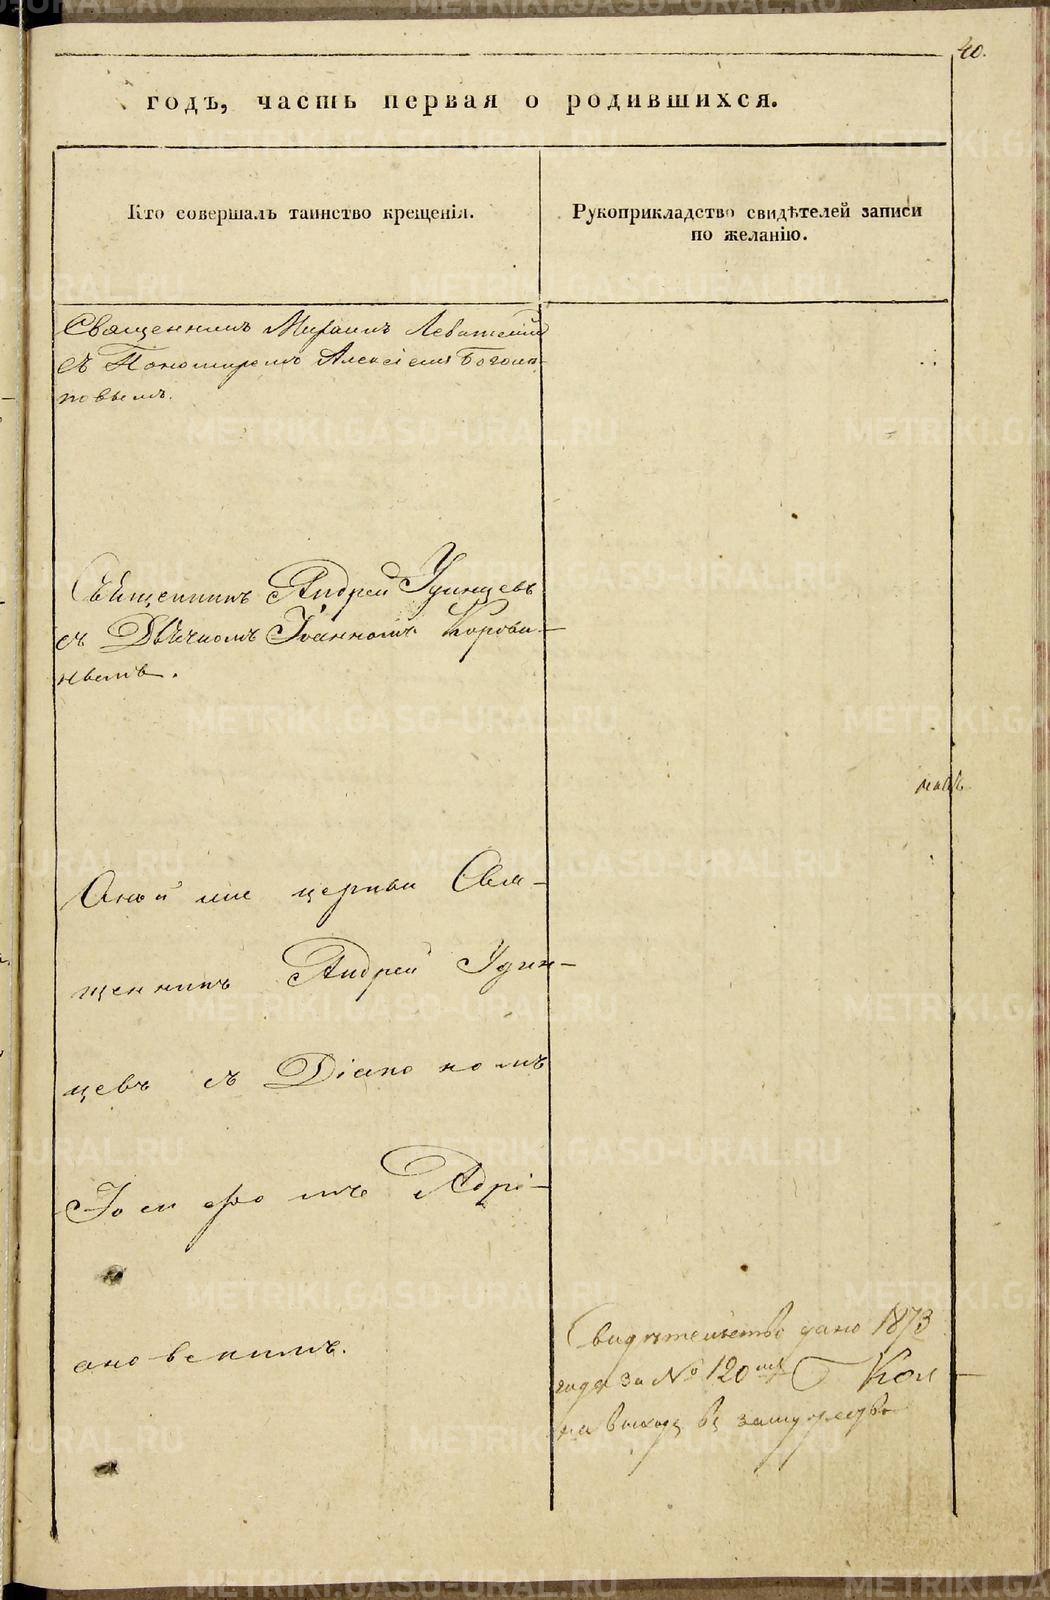 40.
годъ, часть первая о родившихся.
Кто совершалъ таинство крещенія.
Рукоприкладство свидѣтелей записи
по желанію.
Священникъ Михаилъ
съ Пономаремъ Алексіемъ Боголѣ-
повымъ.
Священникъ Андрей Удинцевъ
съ Дьячкомъ Іоанномъ Корови-
нымъ.
Оной же церкви Свя-
щенникъ Андрей Удин-
цевъ съ Діакономъ
Іосифомъ Адрі-
ановскимъ.
Свидѣтельство дано 1873
года за № 120
на выходъ въ замужество
METRIKI.GASO-URAL.RU